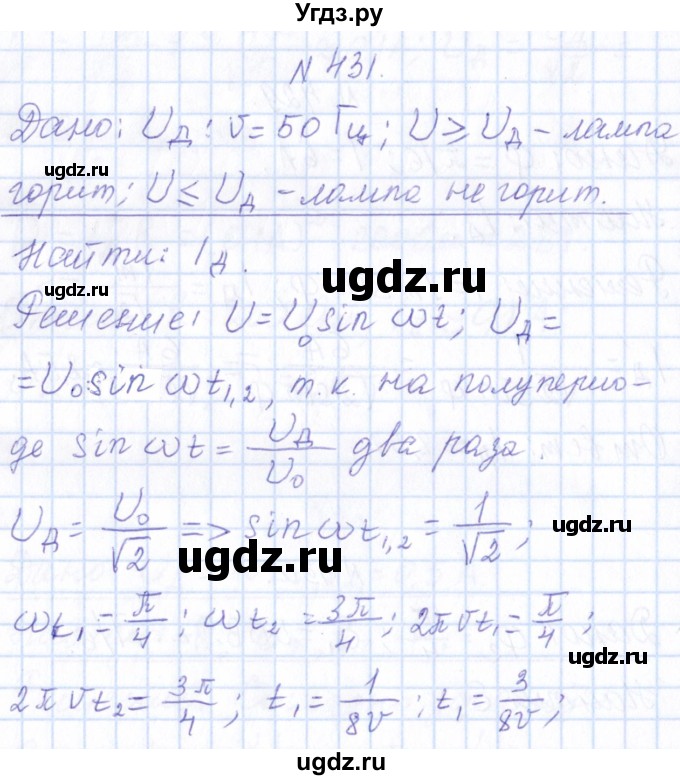 Угдз.ру
N 431.
Дано: U_Д: ν = 50 Гц; U ≥ U_Д - лампа
ugdz.ru
горит; U ≤ U_Д - лампа не горит.
Найти: I_Д.
ugdz.ru
ugdz.ru
Решение: U = U₀ sin ωt; U_Д =
= U₀ sin ωt₁,₂, т.к. на полуперио-
де sin ωt = U_Д/U₀ два раза.
U_Д = U₀/√2 => sin ωt₁,₂ = 1/√2;
ugdz.ru
ugdz.ru
ωt₁ = π/4; ωt₂ = 3π/4; 2πνt₁ = π/4;
ugdz.ru
2πνt₂ = 3π/4; t₁ = 1/8ν; t₁ = 3/8ν;
ugdz.ru